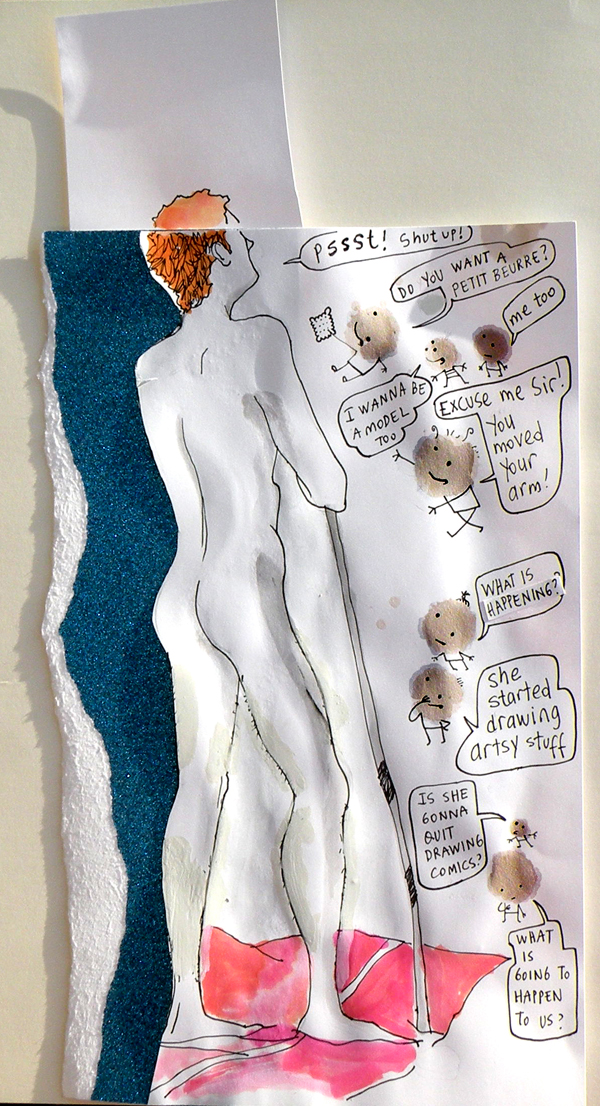 pssst! Shut up!
DO YOU WANT A
PETIT BEURRE?
me too
I WANNA BE
A MODEL
TOO
EXCUSE me Sir!
You
moved
Your
arm!
WHAT IS
HAPPENING?
she
started
drawing
artsy stuff
IS SHE
GONNA
QUIT
DRAWING
COMICS?
WHAT
IS
GOING TO
HAPPEN
TO US?